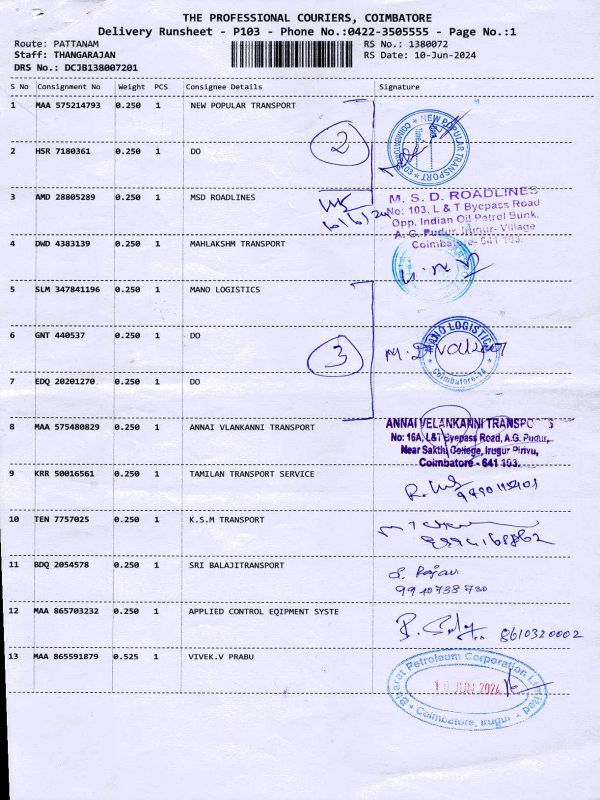 THE PROFESSIONAL COURIERS, COIMBATORE
Delivery Runsheet - P103 - Phone No.:0422-3505555 - Page No.:1
Route: PATTANAM RS No.: 1380072
Staff: THANGARAJAN RS Date: 10-Jun-2024
DRS No.: DCJB138007201
S No Consignment No Weight PCS Consignee Details Signature
1 MAA 575214793 0.250 1 NEW POPULAR TRANSPORT
NEW POPULAR TRANSPORT COIMBATORE
2
2 HSR 7180361 0.250 1 DO
3 AMD 28805289 0.250 1 MSD ROADLINES
M. S. D. ROADLINES
No: 103, L & T Byepass Road
Opp. Indian Oil Petrol Bunk,
A. G. Pudur, Irugur- Village
Coimbatore- 641 103.
4 DWD 4383139 0.250 1 MAHLAKSHM TRANSPORT
5 SLM 347841196 0.250 1 MANO LOGISTICS
6 GNT 440537 0.250 1 DO
3
MANO LOGISTICS
Coimbatore-14
7 EDQ 20201270 0.250 1 DO
8 MAA 575480829 0.250 1 ANNAI VLANKANNI TRANSPORT
ANNAI VELANKANNI TRANSPO
No: 16A, L&T Byepass Road, A.G. Pudur,
Near Sakthi College, Irugur Pirivu,
Coimbatore - 641 103.
9 KRR 50016561 0.250 1 TAMILAN TRANSPORT SERVICE
10 TEN 7757025 0.250 1 K.S.M TRANSPORT
11 BDQ 2054578 0.250 1 SRI BALAJITRANSPORT
S. Rajan
9910738730
12 MAA 865703232 0.250 1 APPLIED CONTROL EQIPMENT SYSTE
8610320002
13 MAA 865591879 0.525 1 VIVEK.V PRABU
Bharat Petroleum Corporation Limited
10 JUN 2024
Coimbatore, Irugur